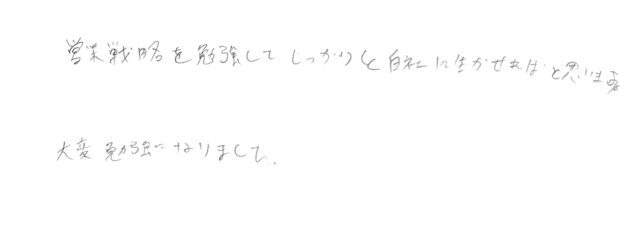 営業戦略を勉強して しっかりと自社に生かせればと思います
大変勉強になりまして.